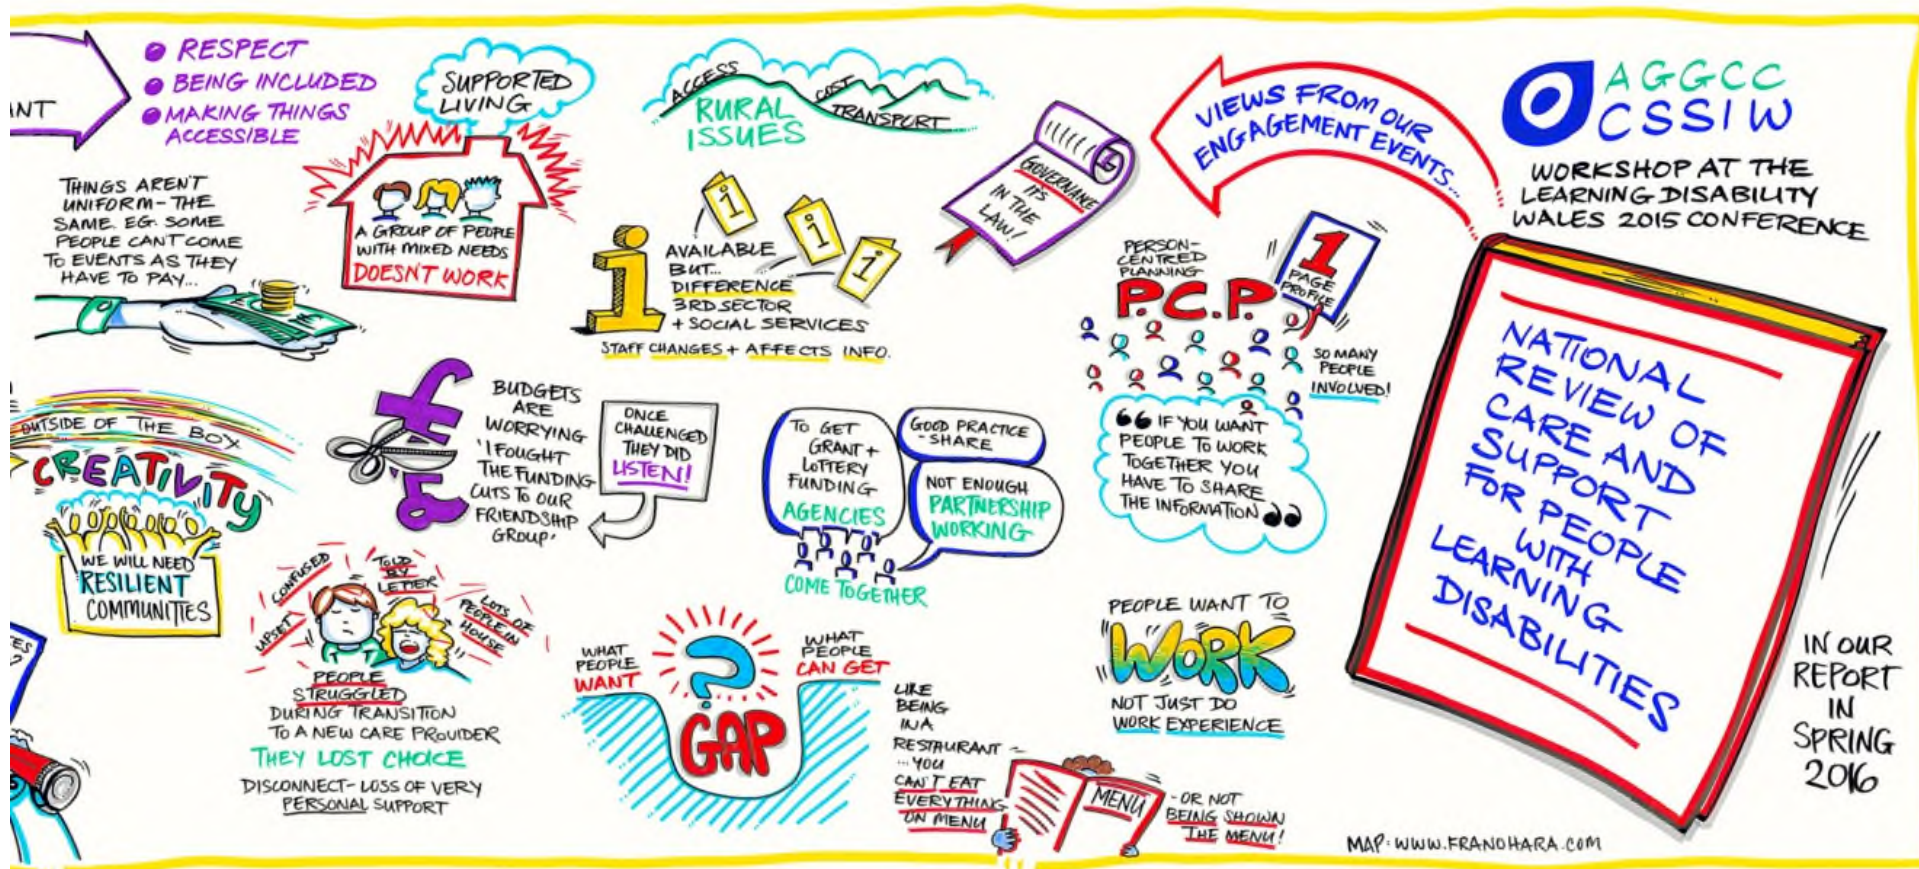 • RESPECT
• BEING INCLUDED
• MAKING THINGS
ACCESSIBLE
THINGS AREN'T
UNIFORM - THE
SAME. EG. SOME
PEOPLE CAN'T COME
TO EVENTS AS THEY
HAVE TO PAY...
SUPPORTED
LIVING
A GROUP OF PEOPLE
WITH MIXED NEEDS
DOESN'T WORK
ACCESS
COST
TRANSPORT
RURAL
ISSUES
i
i
i
i
AVAILABLE
BUT...
DIFFERENCE
3RD SECTOR
+ SOCIAL SERVICES
STAFF CHANGES + AFFECTS INFO.
GOVERNANCE
IT'S
IN THE
LAW!
VIEWS FROM OUR
ENGAGEMENT EVENTS...
AGGCC
CSSIW
WORKSHOP AT THE
LEARNING DISABILITY
WALES 2015 CONFERENCE
PERSON-
CENTRED
PLANNING
P.C.P
1
PAGE
PROFILE
SO MANY
PEOPLE
INVOLVED!
“ IF YOU WANT
PEOPLE TO WORK
TOGETHER YOU
HAVE TO SHARE
THE INFORMATION ”
NATIONAL
REVIEW OF
CARE AND
SUPPORT
FOR PEOPLE
WITH
LEARNING
DISABILITIES
IN OUR
REPORT
IN
SPRING
2016
OUTSIDE OF THE BOX
CREATIVITY
WE WILL NEED
RESILIENT
COMMUNITIES
£
BUDGETS
ARE
WORRYING
'I FOUGHT
THE FUNDING
CUTS TO OUR
FRIENDSHIP
GROUP.'
ONCE
CHALLENGED
THEY DID
LISTEN!
TO GET
GRANT +
LOTTERY
FUNDING
AGENCIES
GOOD PRACTICE
- SHARE
NOT ENOUGH
PARTNERSHIP
WORKING
COME TOGETHER
UPSET
CONFUSED
TOLD
BY
LETTER
LOTS OF
PEOPLE IN
HOUSE
PEOPLE
STRUGGLED
DURING TRANSITION
TO A NEW CARE PROVIDER
THEY LOST CHOICE
DISCONNECT - LOSS OF VERY
PERSONAL SUPPORT
WHAT
PEOPLE
WANT
?
GAP
WHAT
PEOPLE
CAN GET
LIKE
BEING
IN A
RESTAURANT -
... YOU
CAN'T EAT
EVERYTHING
ON MENU
MENU
- OR NOT
BEING SHOWN
THE MENU!
PEOPLE WANT TO
WORK
NOT JUST DO
WORK EXPERIENCE
MAP: WWW.FRANOHARA.COM